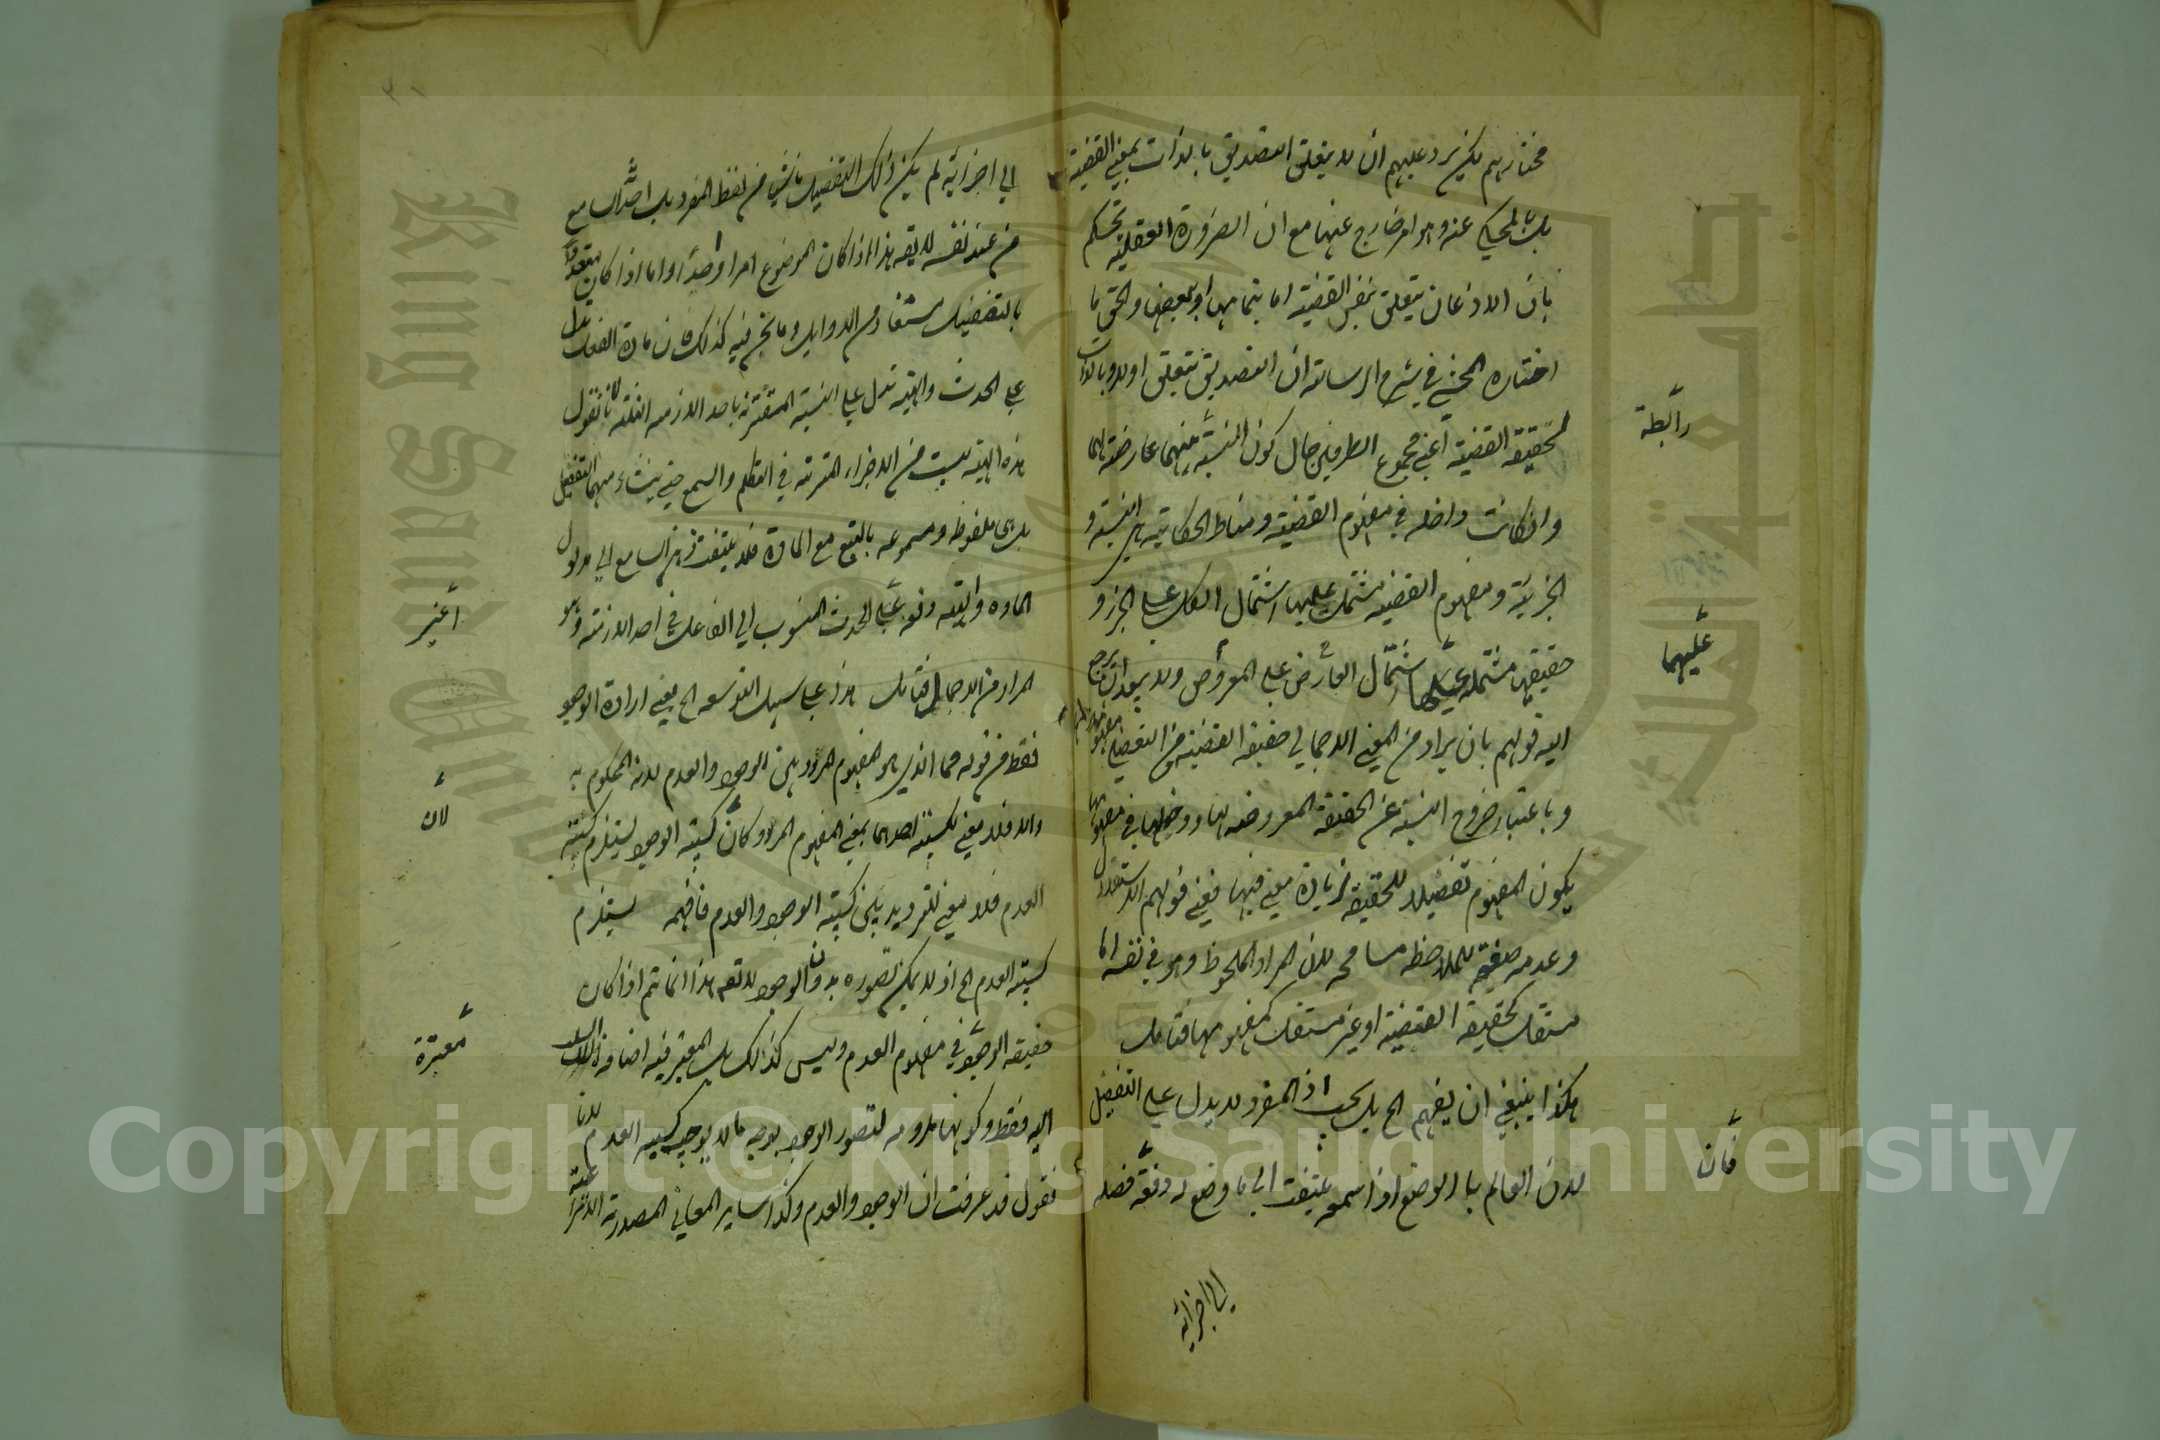 مختارهم لكن يرد عليهم ان لا يتعلق التصديق بالذات بمعنى القضية
بل بالمحكي عنه وهو امر خارج عنها مع ان الضرورة العقلية تحكم
بان الاذعان يتعلق بنفس القضية اما بتمامها او ببعضها والحق ما
اختاره المحشي في شرح الرسالة ان التصديق يتعلق اولا وبالذات
لحقيقة القضية اعني مجموع الطرفين حال كون النسبة بينهما عارضة لهما
رابطة
وان كانت داخلة في مفهوم القضية ومناط الحكاية هي النسبة و
الجزئية ومفهوم القضية مشتمل عليها اشتمال الكل على الجزء و
حقيقتها مشتملة عليها اشتمال العارض على المعروض ولا يبعد ان يرجع
عليهما
اليه قولهم بان يراد من المعنى الاجمالي حقيقة القضية ومن التفصيلي مفهومها
وباعتبار خروج النسبة عن الحقيقة المعروضة لها ودخولها في مفهومها
يكون المفهوم تفصيلا للحقيقة لزيادة معنى فيها فمعنى قولهم الاستقلال
وعدمه صفة للملاحظة مسامحة لان المراد الملحوظ وهو في نفسه اما
مستقل كحقيقة القضية او غير مستقل كمفهومها فتامل
هكذا ينبغي ان يفهم الخ بل يجب اذ المفرد لا يدل على التفصيل
لان العالم بالوضع اذا سمعه يلتفت الى ما وضع له دفعة فصله
فان
الى اجزائه
الى اجزائه لم يكن ذلك التفصيل ناشيا من لفظ المفرد بل احدثه السامع
من عند نفسه لا يقال هذا اذا كان الموضوع امرا واحدا واما اذا كان متعددا
بالتفصيل مستفاد من الدوال وما نحن فيه كذلك فان مادة الفعل تدل
على الحدث والهيئة تدل على النسبة المقترنة باحد الازمنة الثلثة لانا نقول
هذه الهيئة ليست من الاجزاء المترتبة في التكلم والسمع حتى ينشاء منهما التفصيل
بل هي ملفوظة ومسموعة بالتبع مع المادة فلا يلتفت ذهن السامع الى مدلول
المادة والهيئة دفعة على الحدث المنسوب الى الفاعل في احد الازمنة وهو
اعني
المراد من الاجمال فتامل هذا على سبيل التوسعة الخ يعني ارادة الوجود
فقط من قوله فما الذي هو المفهوم المردد بين الوجود والعدم لانه المحكوم به
والا فلا معنى لكسبية احدهما بمعنى المفهوم المردد وكان كسبية الوجود يستلزم كسبية
لان
العدم فلا معنى للترديد بين كسبية الوجود والعدم فافهم يستلزم
كسبية العدم الخ اذ لا يمكن تصوره بدون الوجود لا يقال هذا انما يتم اذا كان
حقيقة الوجود في مفهوم العدم وليس كذلك بل المعتبر فيه اضافة السلب
معتبرة
اليه فقط وكونها ملزومة لتصور الوجود بوجه ما لا يوجب كسبية العدم لانا
نقول قد عرفت ان الوجود والعدم وكذا ساير المعاني المصدرية الانتزاعية